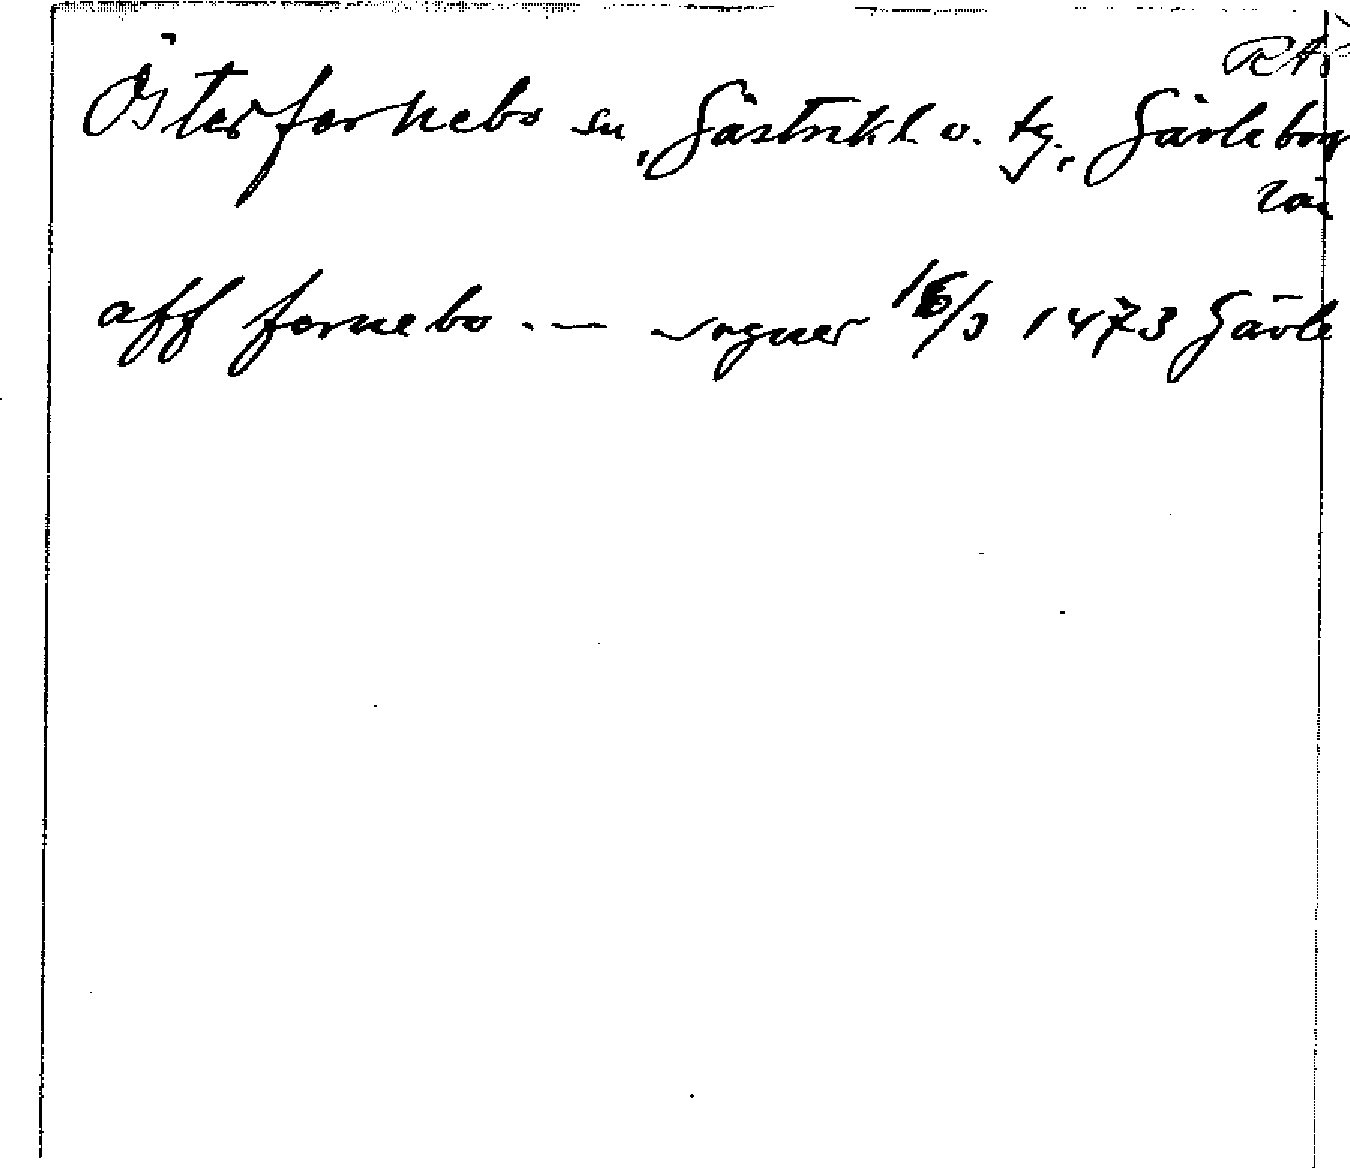 RA
Österfernebo sn, Gästrikl. ö. tg., Gävleborg
län
aff fernebo . — sogner 16/3 1473 Gävle